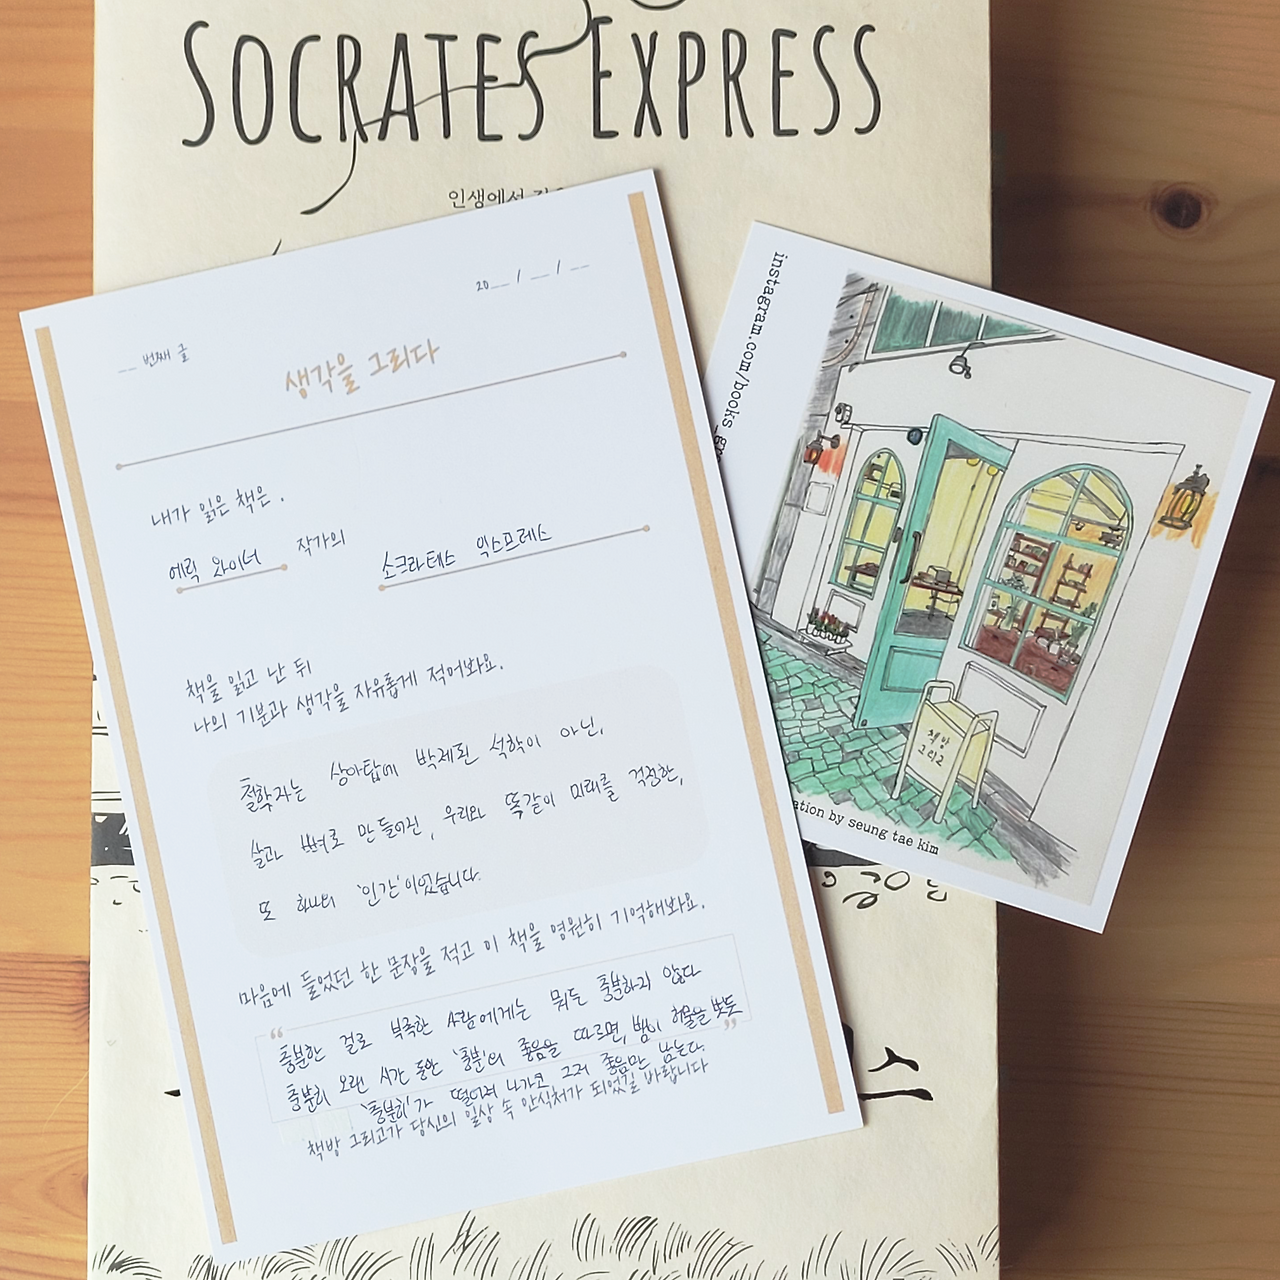 SOCRATES EXPRESS
인생에서
20__ / __ / __
__ 번째 글
생각을 그리다
내가 읽은 책은.
에릭 와이너 작가의 소크라테스 익스프레스
책을 읽고 난 뒤
나의 기분과 생각을 자유롭게 적어봐요.
철학자는 상아탑에 박제된 석학이 아닌,
살과 뼈로 만들어진, 우리와 똑같이 미래를 걱정한,
또 하나의 '인간'이었습니다.
마음에 들었던 한 문장을 적고 이 책을 영원히 기억해봐요.
“ 충분한 걸로 부족한 사람에게는 뭐든 충분하지 않다
충분히 오랜 시간 동안 '충분'의 좋음을 따르면, 밤이 허물을 벗듯 ”
'충분히'가 떨어져 나가고 그저 좋음만 남는다.
책방 그리고가 당신의 일상 속 안식처가 되었길 바랍니다
instagram.com/books_gr
책방
그리고
ation by seung tae kim